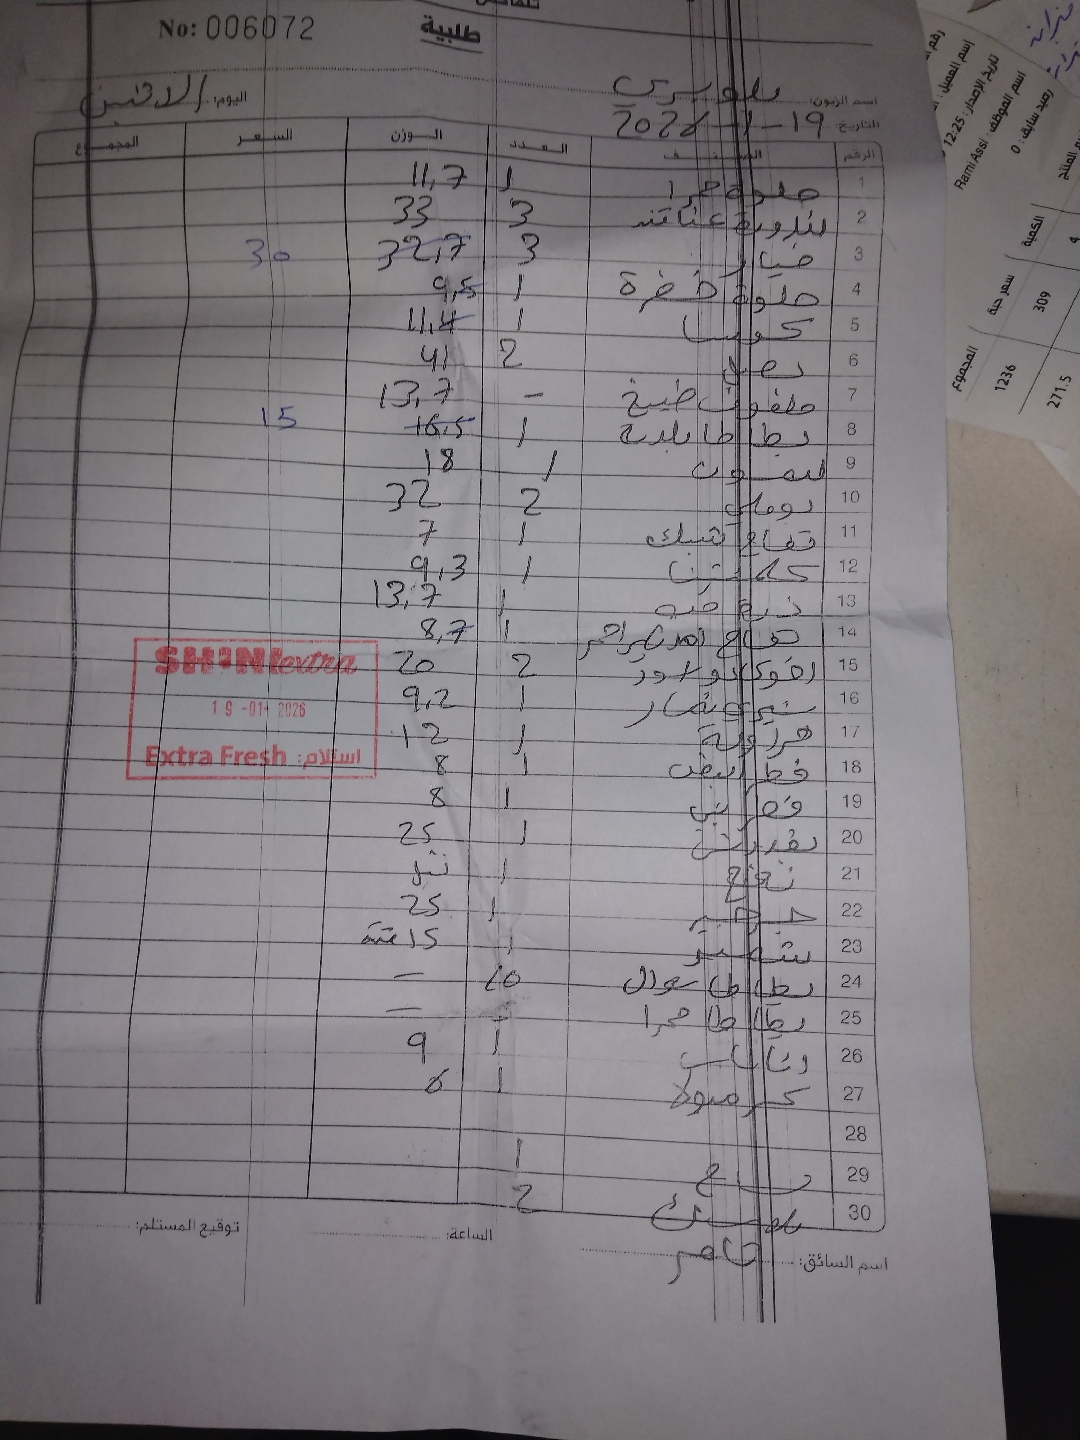 No: 006072
طلبية
اسم الزبون:
اليوم: الاثنين
التاريخ: 19-1-2026
الرقم الصنف العدد الوزن السعر المجموع
1 حلوة حمرا 1 11,7
2 بندورة عناقيد 3 33
3 خيار 3 32,7 30
4 حلوة خضرة 1 9,5
5 كوسا 1 11,4
6 بصل 2 41
7 ملفوف طبيخ - 13,7
8 بطاطا بلدية 1 16,5 15
9 ليمون 1 18
10 بوملي 2 32
11 تفاح 1 7
12 كلمنتينا 1 9,3
13 ذرة حبة 1 13,7
14 تفاح احمر 1 8,7
15 افوكادو 2 20
16 شيري 1 9,2
17 فراولة 1 12
18 فطر ابيض 1 8
19 فطر بني 1 8
20 بقدونس 1 25
21 نعنع 1
22 جرجير 1 25
23 1 15
24 بطاطا 10 -
25 بطاطا حمرا -
26 1 9
27 كرمبولا 1 6
28
29 1
30 2
اسم السائق:
الساعة:
توقيع المستلم:
SHINI extra
19-01-2026
Extra Fresh استلام:
اسم العميل:
تاريخ الإصدار: 12:25
اسم الموظف: Rami Assi
رصيد سابق: 0
الكمية
سعر حبة
309
المجموع
1236
271.5